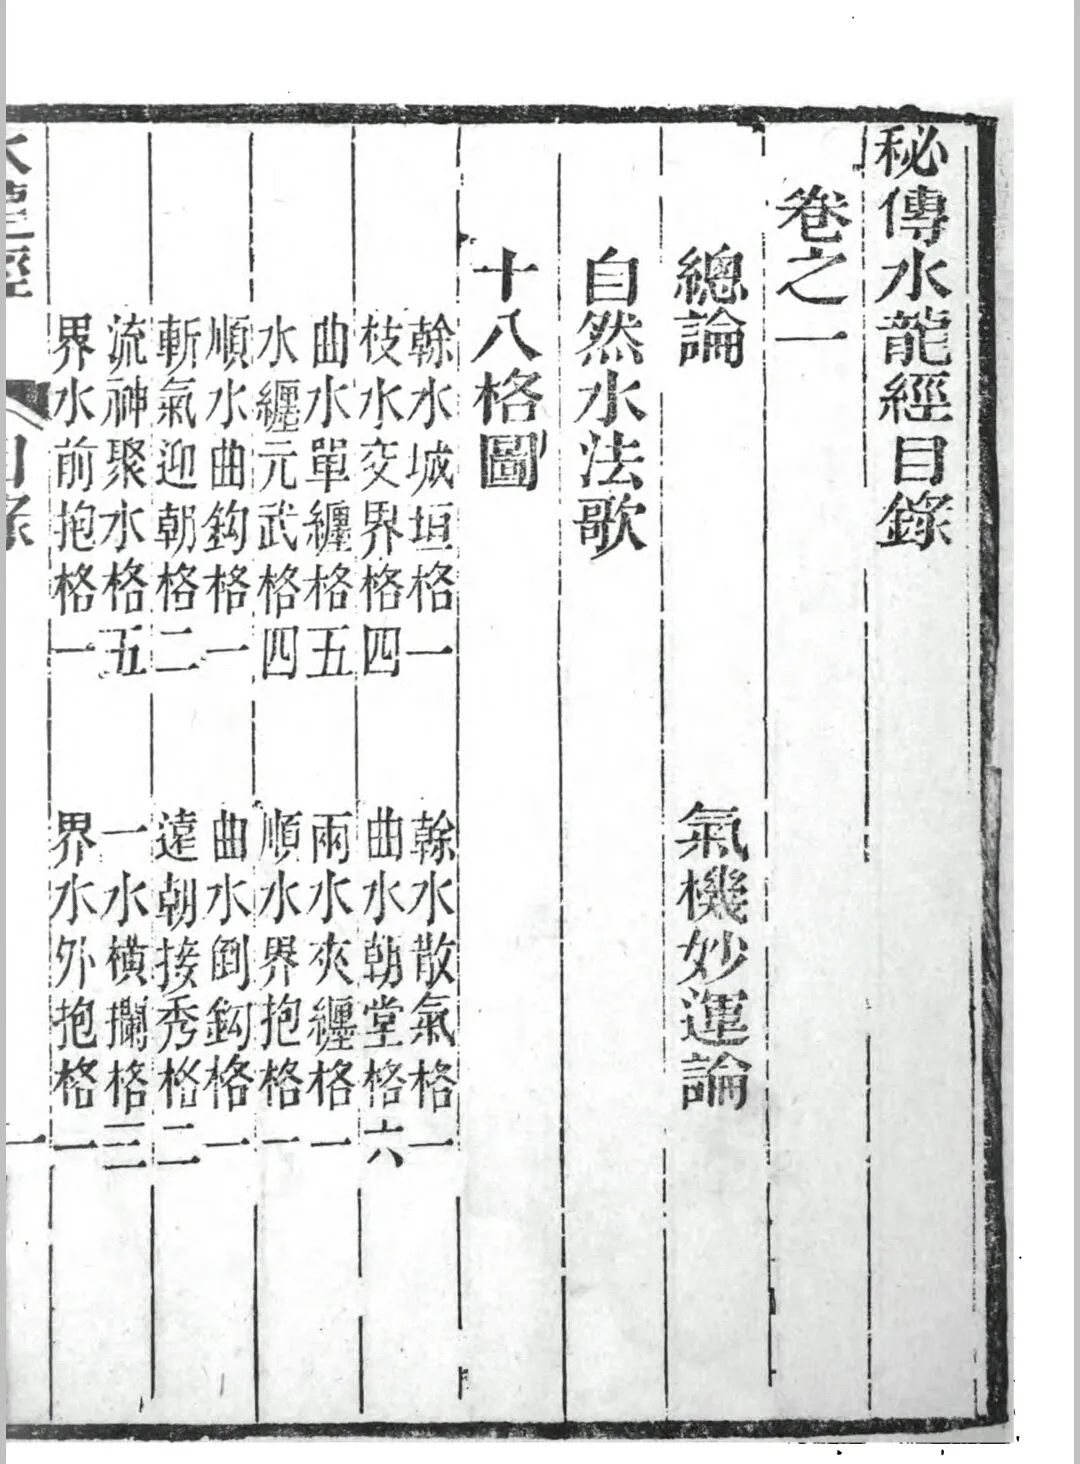 秘傳水龍經目錄
卷之一
總論　氣機妙運論
自然水法歌
十八格圖
榦水城垣格一　榦水散氣格一
枝水交界格四　曲水朝堂格六
曲水單纏格五　兩水夾纏格一
水纏元武格四　順水界抱格一
順水曲鈎格一　曲水倒鈎格一
斬氣迎朝格二　遠朝接秀格二
流神聚水格五　一水橫攔格三
界水前抱格一　界水外抱格一
水龍經　目錄　一